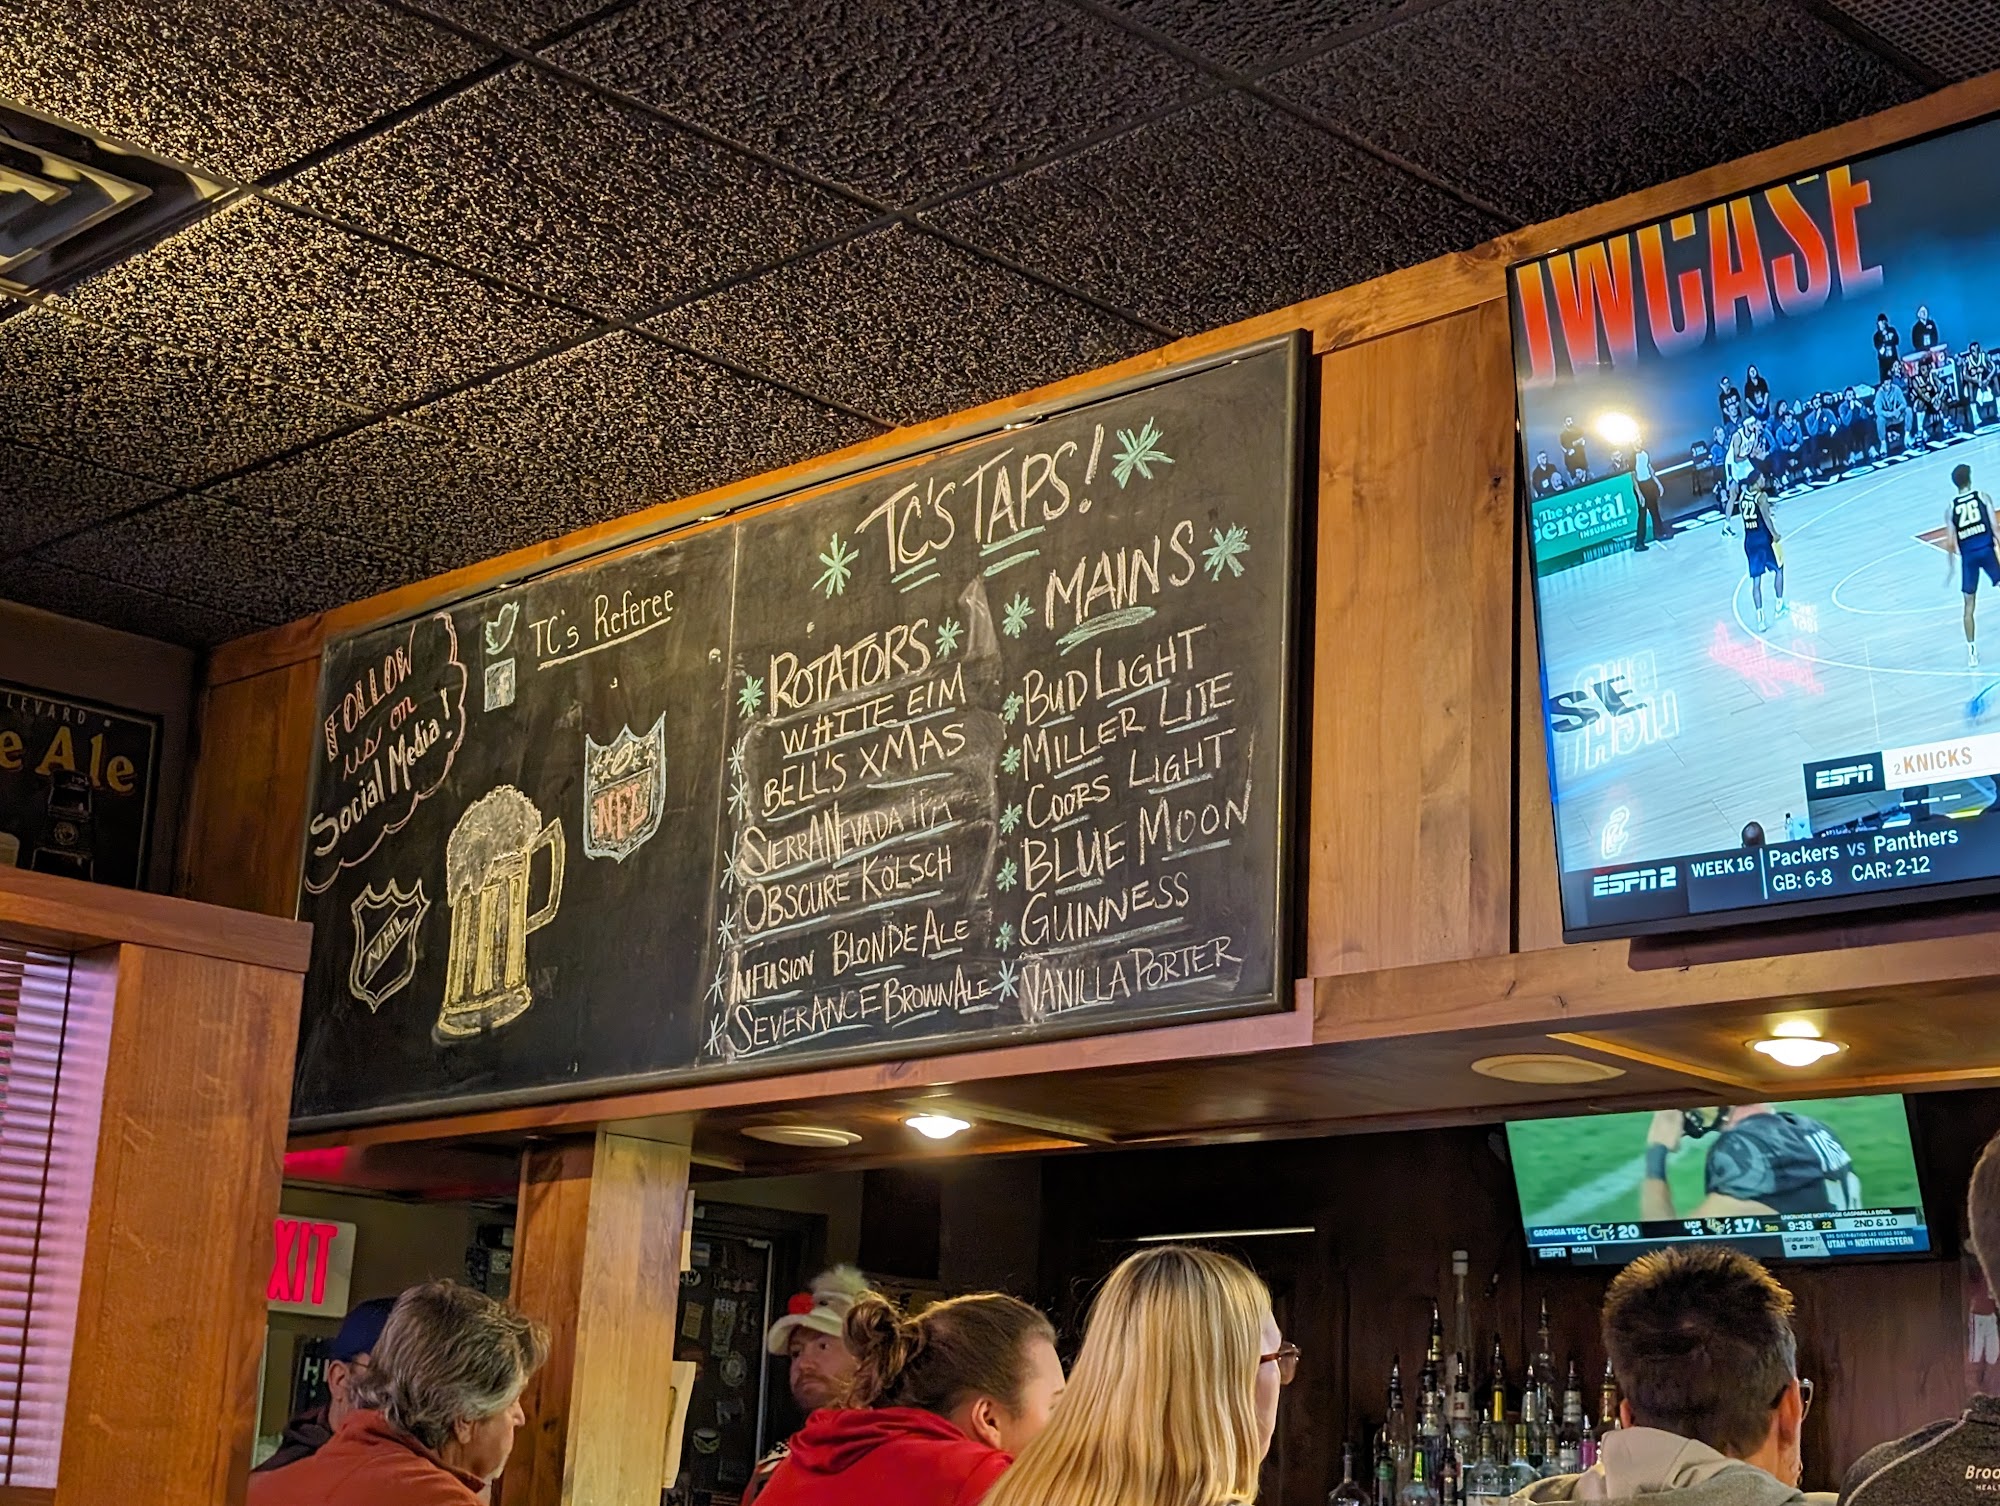 LEVARD
e Ale
FOLLOW
us on
Social Media!
TC's Referee
NFL
NHL
TC'S TAPS!
ROTATORS
WHITE EIM
BELL'S XMAS
SIERRA NEVADA IPA
OBSCURE KÖLSCH
INFUSION BLONDE ALE
SEVERANCE BROWN ALE
MAINS
BUD LIGHT
MILLER LITE
COORS LIGHT
BLUE MOON
GUINNESS
VANILLA PORTER
OWCASE
The
General
INSURANCE
22
26
ESPN
2 KNICKS
ESPN 2
WEEK 16
Packers vs Panthers
GB: 6-8 CAR: 2-12
UNION HOME MORTGAGE GASPARILLA BOWL
GEORGIA TECH GT 20 UCF 17 3RD 9:38 22 2ND & 10
ESPN NCAAM
UTAH vs NORTHWESTERN
EXIT
BEER
Broo
HEALT